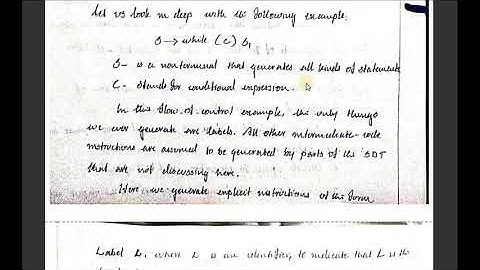 Let us look in deep with the following example.
S → while (C) S₁
S - is a nonterminal that generates all kinds of statements
C - Stands for conditional expression.
In this flow of control example, the only things
we ever generate are labels. All other intermediate-code
instructions are assumed to be generated by parts of the SDT
that are not discussing here.
Here we generate explicit instructions of the form
Label L, where L is an identifier, to indicate that L is the